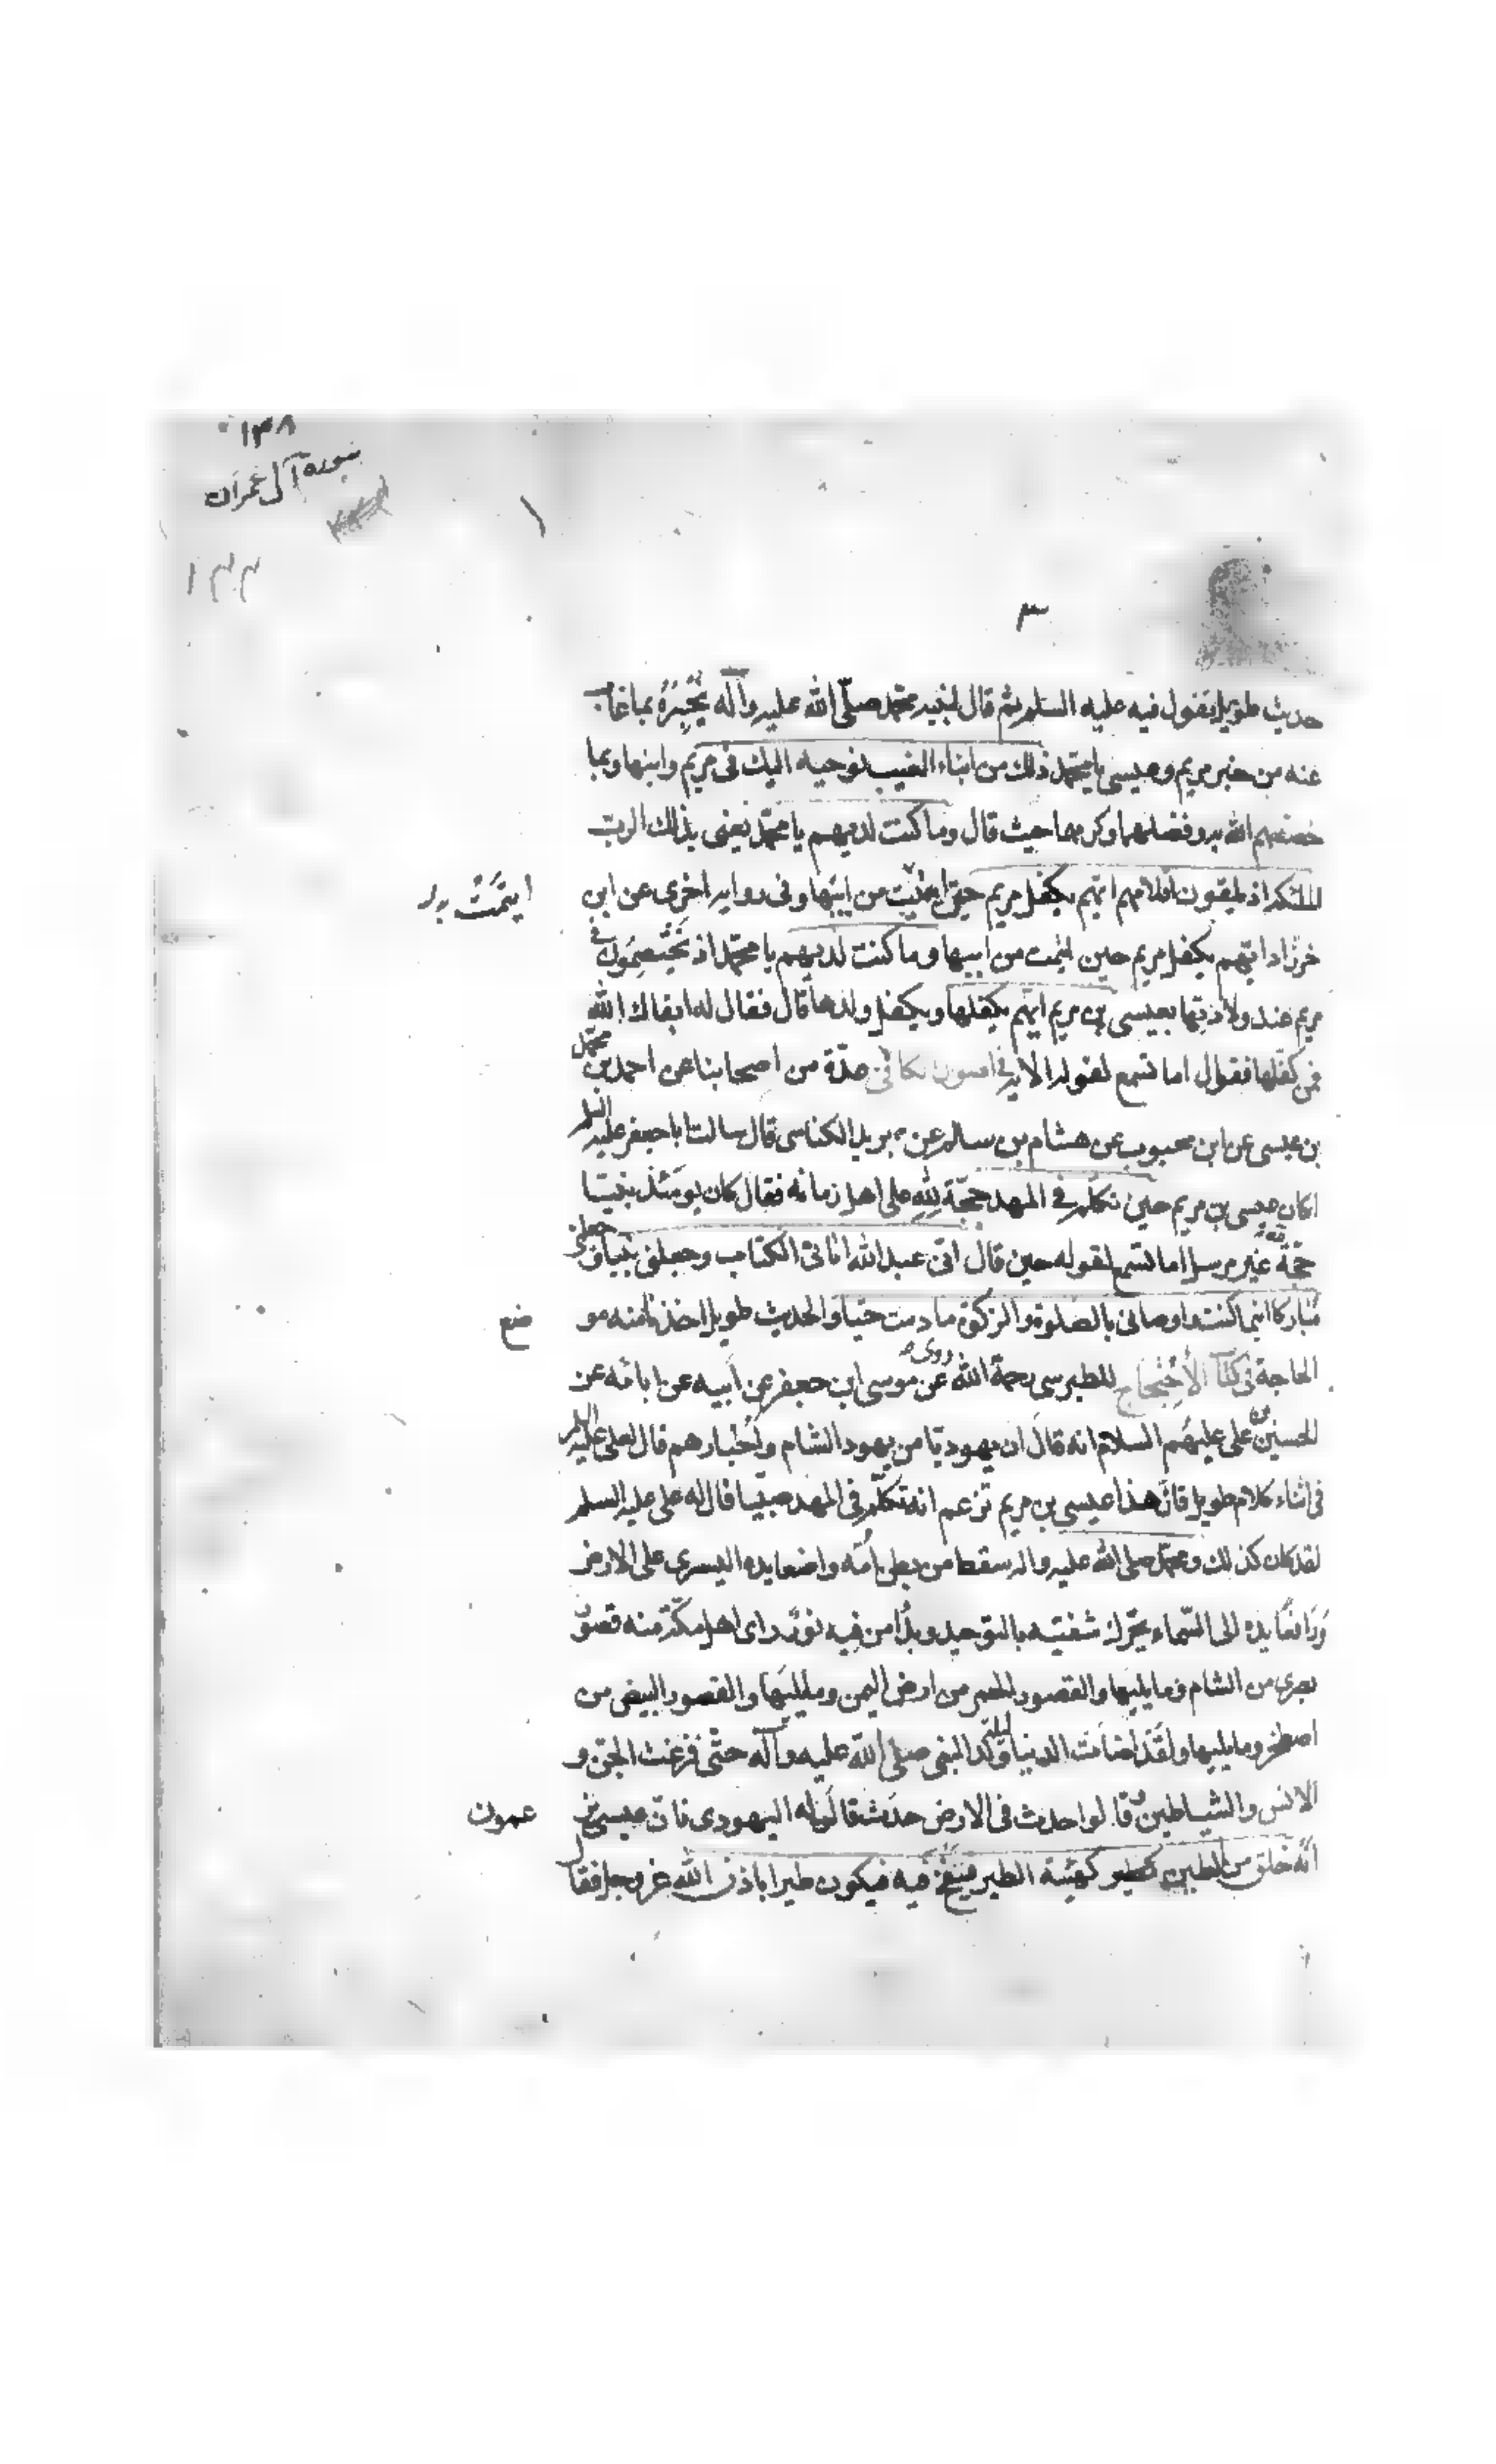 ١٣٨
سورة آل عمران
١٤٤
٣
حديث طويل يقول فيه عليه السلم ثم قال لنبيه محمد صلّى الله عليه وآله يُخْبِرُهُ بما غاب
عنه من خبر مريم وعيسى يا محمد ذلك من انباء الغيب نوحيه اليك فى مريم وابنها وبما
خصهم الله به وفضلهما وكرمهما حيث قال وما كنت لديهم يا محمّد يعنى بذلك الرب
الملئكة اذ يلقون اقلامهم ايهم يكفل مريم حين ايتمت من ابيها وفى رواية اخرى عن ابن
ايتمَتْ
خرزاد ايهم يكفل مريم حين ايتمت من ابيها وما كنت لديهم يا محمّد اذ يَخْتَصِمُونَ فى
مريم عند ولادتها بعيسى بن مريم ايهم يكفلها ويكفل ولدها قال فقال له ابقاك الله
فمن كفّلها فقال اما تسمع لقوله الاية فى اصول الكافى عدّة من اصحابنا عن احمد بن محمّد
بن عيسى عن ابن محبوب عن هشام بن سالم عن بريد الكناسى قال سالت ابا جعفر عليه السلم
اكان عيسى بن مريم حين تكلّم فى المهد حجّة لِلّهِ على اهل زمانه فقال كان يومئذ نبيّا
حجّة لله غير مرسل اما تسمع لقوله حين قال انى عبد الله اتانى الكتاب وجعلنى نبيا وجعلنى
مُباركا اينما كنت واوصانى بالصلوة والزكوة ما دمت حيّا والحديث طويل اخذنا منه مو
ضع
الحاجة فى كتاب الأحْتِجَاج للطبرسى رحمة الله روى عن موسى ابن جعفر عن أبيه عن ابائه عن
الحسين بن على عليهم السلام انه قال ان يهوديّا من يهود الشام وأحبارهم قال لعلى عليه السلم
فى اثناء كلام طويل فانّ هذا عيسى بن مريم تزعم انه تكلّم فى المهد صبيّا قال له على عليه السلم
لقد كان كذلك ومحمّد صلى الله عليه واله سقط من بطن اُمّه واضعا يده اليسرى على الارض
وَرَافعًا يده الى السّماء يحرّك شفتيه بالتوحيد وبدُا من فيه نورٌ راى اهل مكّة منه قصورُ
بصرى من الشام وما يليها والقصور الحمر من ارض اليمن وما يليها والقصور البيض من
اصطخر وما يليها ولَقَدْ اضاءَت الدنيا ليلة ولد النبى صلى اللّه عليه وآله حتّى فزعت الجن و
الانس والشياطين وقالوا حدث فى الارض حدَث قال له اليهودى فانّ عيسى يز
عمون
انّه خلق من الطين كهيئة الطير فينفخ فيه فيكون طيرا باذن الله عز وجل فقال